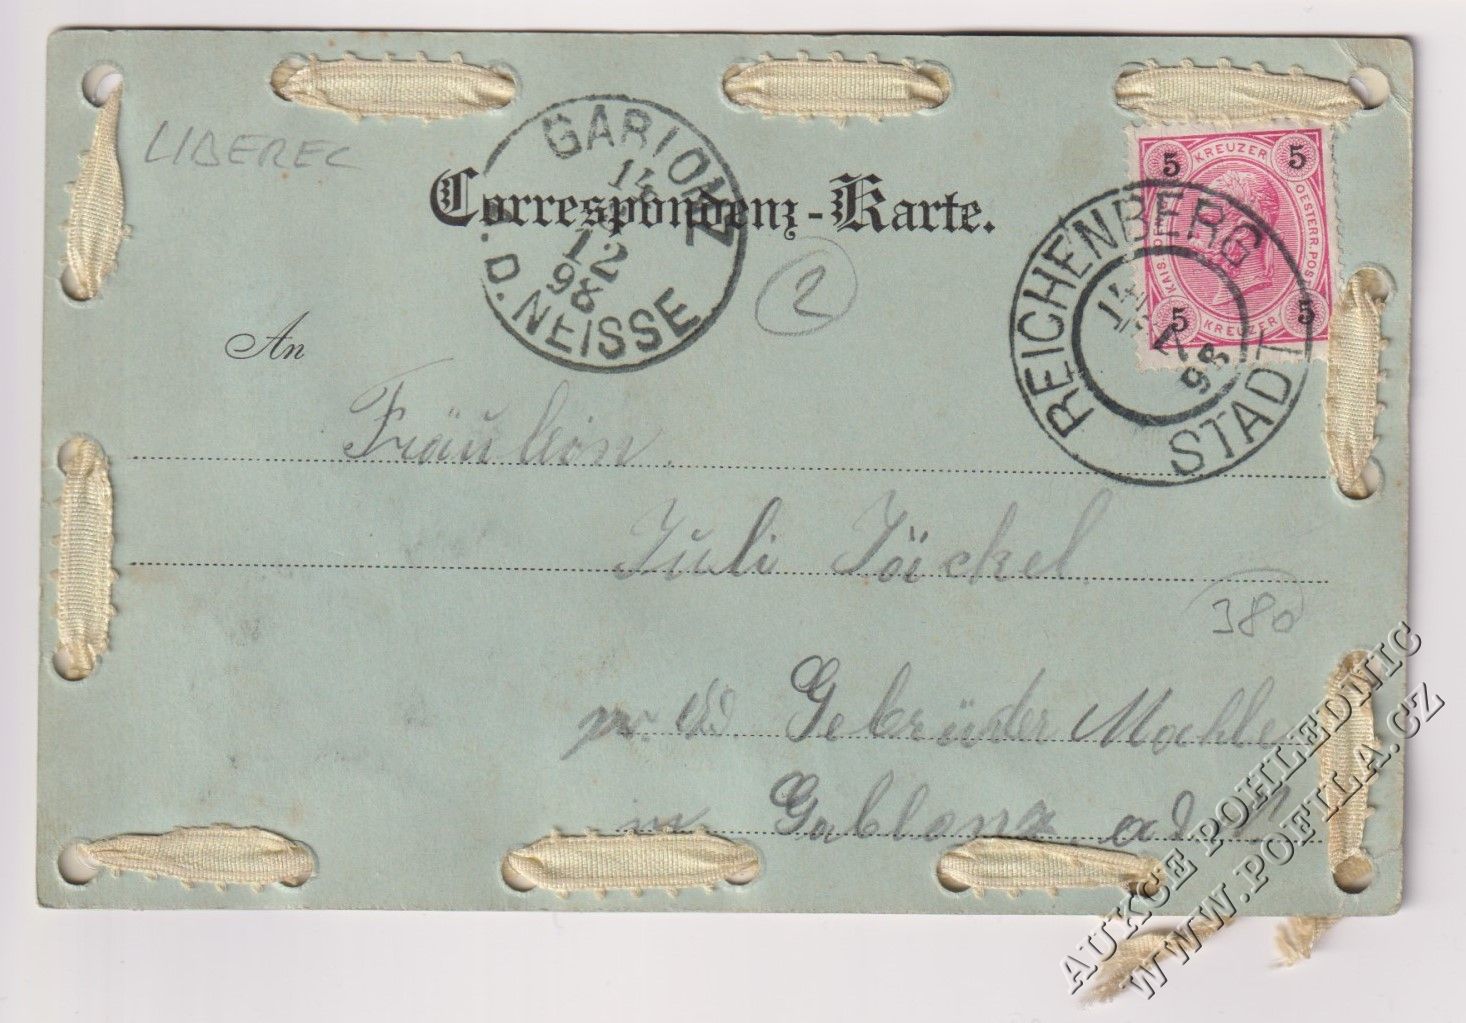 LIBEREC
GABLONZ
A. D. NEISSE
14
12
98
Correspondenz-Karte.
2
5 KREUZER 5
5 KREUZER 5
OESTERR. POST
KAIS.
REICHENBERG
STADT
14
98
An
Fräulein
Juli Jäckel
380
Gebrüder Mahle
in Gablonz a d N
AUKCE POHLEDNIC
WWW.POFILA.CZ